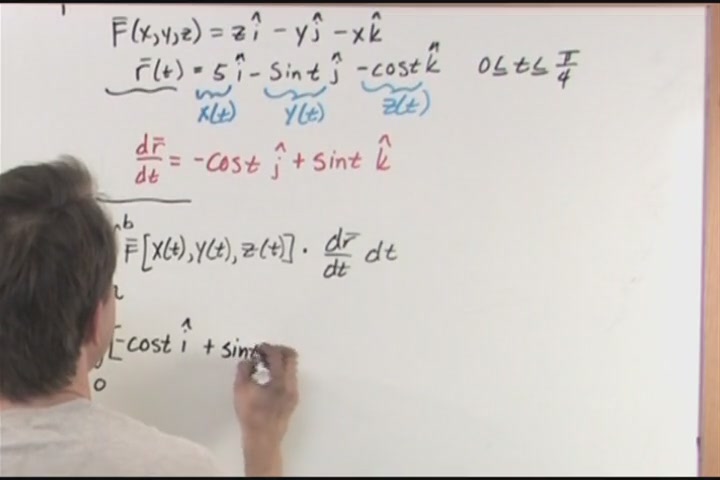 F̄(x,y,z) = z î - y ĵ - x k̂
r̄(t) = 5 î - sint ĵ - cost k̂ 0 ≤ t ≤ π/4
x(t) y(t) z(t)
dr̄/dt = -cost ĵ + sint k̂
b
F̄[x(t), y(t), z(t)] · dr̄/dt dt
[-cost î + sint
0